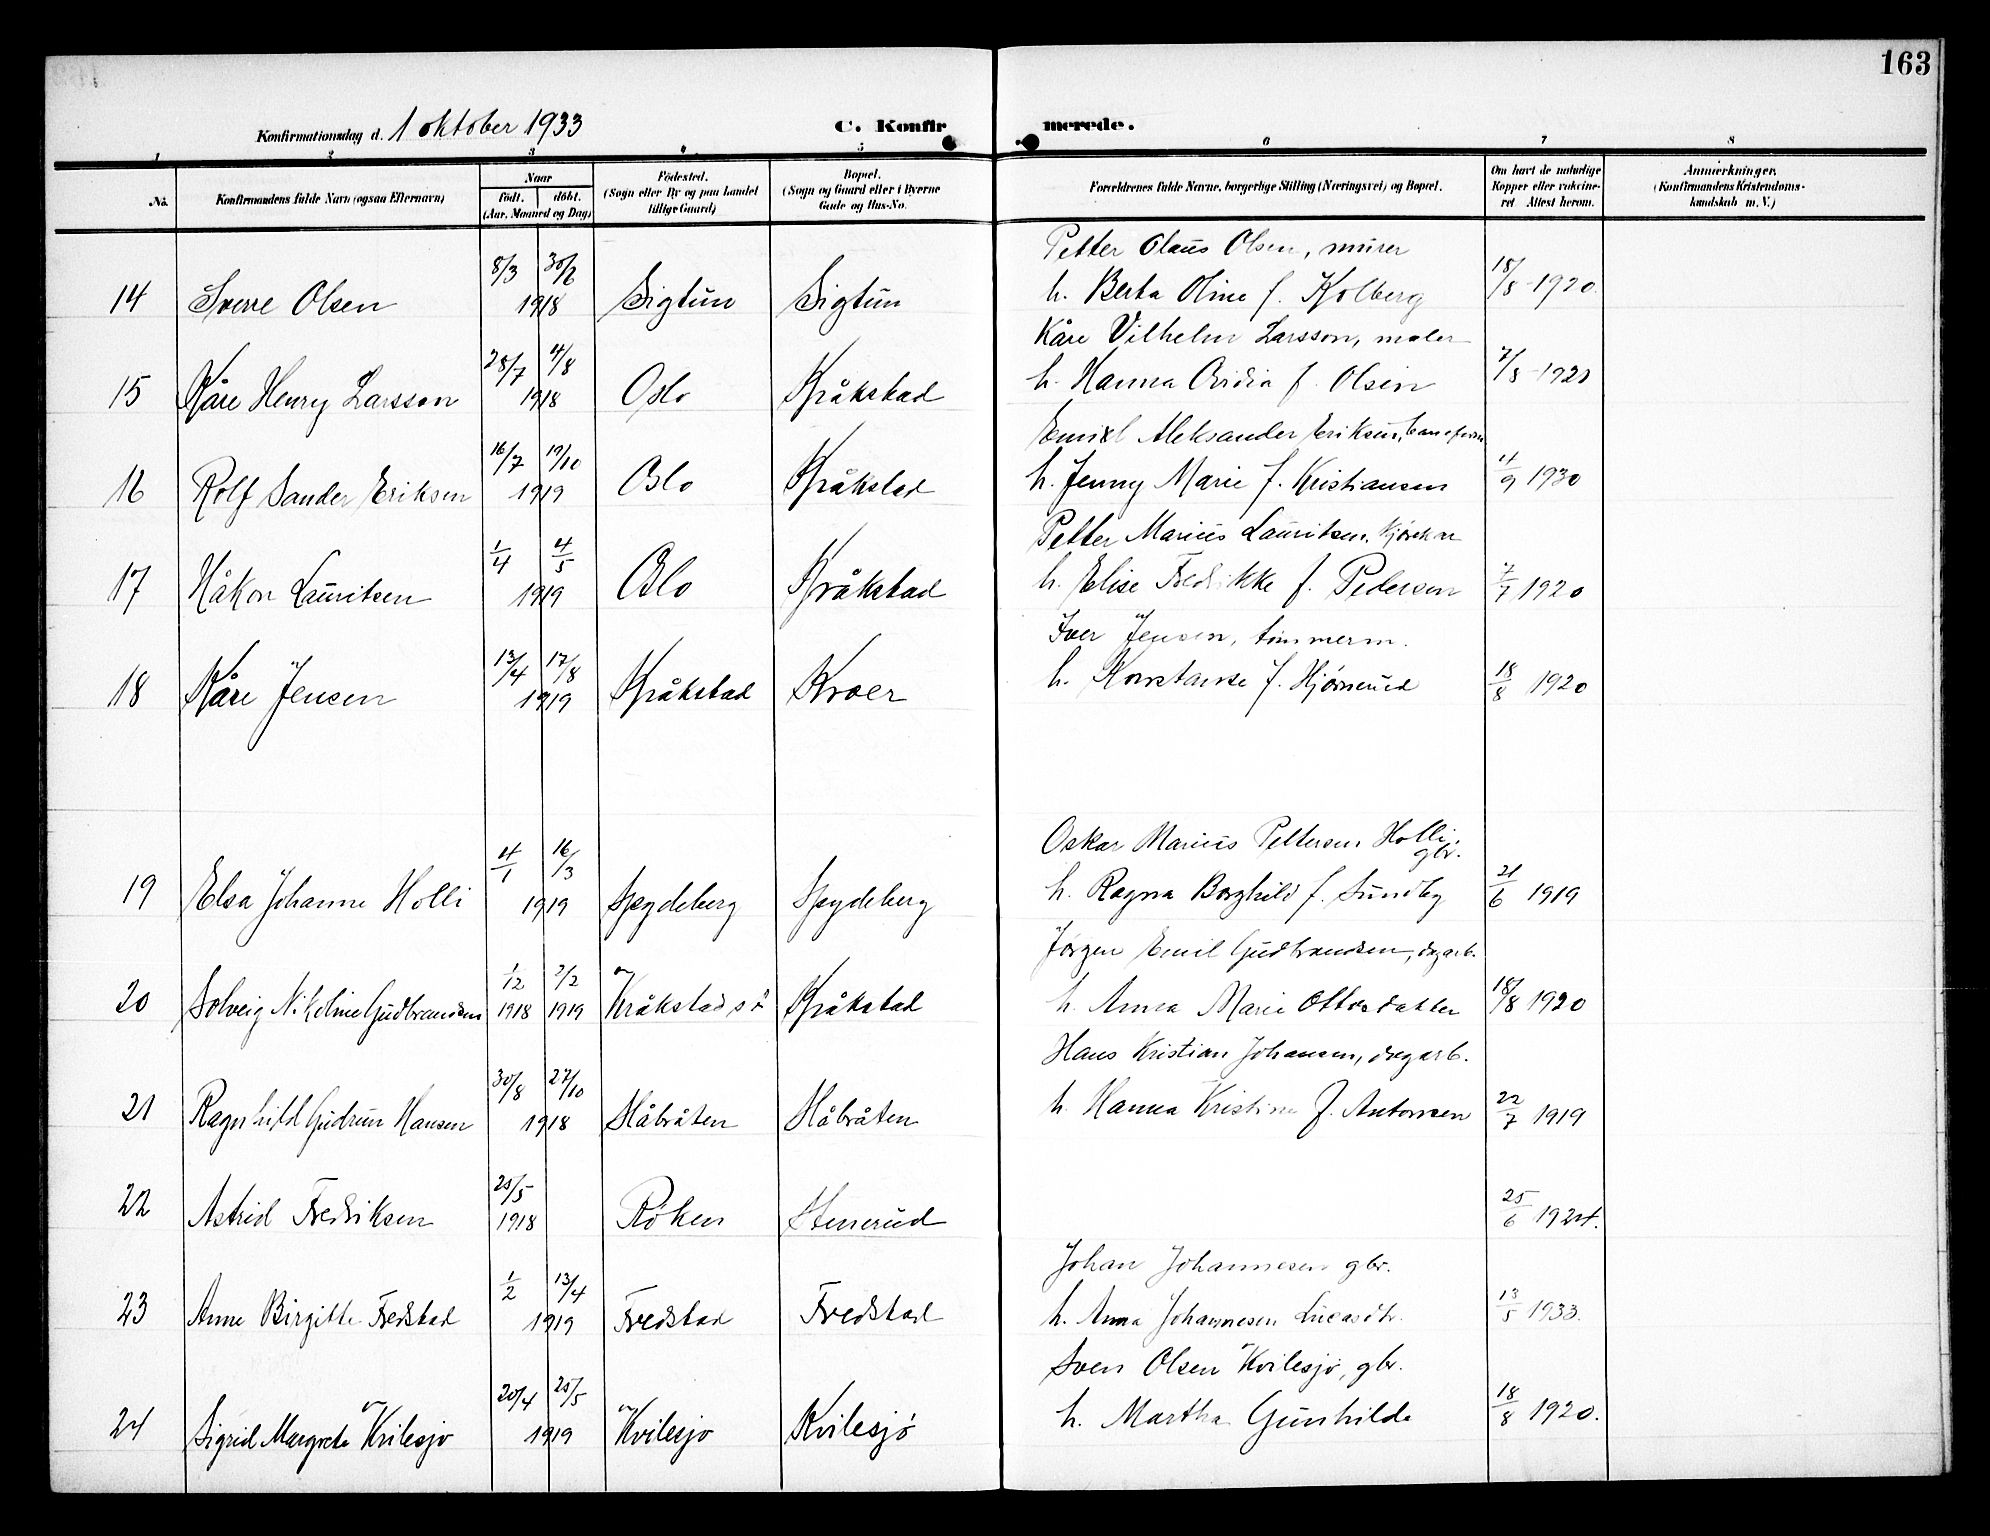 163
Konfirmationsdag d. 1 oktober 1933
C. Konfirmerede.
1 2 3 4 5 6 7 8
No. Konfirmandens fulde Navn (ogsaa Efternavn) Naar født. døbt. (Aar, Maaned og Dag) Fødested. (Sogn eller By og paa Landet tillige Gaard) Bopæl. (Sogn og Gaard eller i Byerne Gade og Hus-No. Forældrenes fulde Navne, borgerlige Stilling (Næringsvei) og Bopæl. Om havt de naturlige Kopper eller vaccineret Attest herom. Anmærkninger. (Konfirmandens Kristendomskundskab m.V.)
Petter Olaus Olsen, murer
14 Sverre Olsen 8/3 30/6 1918 Sigtun Sigtun h. Berta Oline f. Kolberg 18/8 1920.
Kåre Vilhelm Larsson, maler
15 Kåre Henry Larsson 28/7 4/8 1918 Oslo Kråkstad h. Hanna Ovidia f. Olsen 7/8 1920
Emil Aleksander Eriksen,
16 Rolf Sander Eriksen 16/7 19/10 1919 Oslo Kråkstad h. Jenny Marie f. Kristiansen 4/9 1930
Petter Marius Lauritsen,
17 Håkon Lauritsen 1/4 4/5 1919 Oslo Kråkstad h. Elise Fredrikke f. Pedersen 7/7 1920
Iver Jensen, tømmerm.
18 Kåre Jensen 13/4 17/8 1919 Kråkstad Kroer h. Konstanse f. Hjørnerud 18/8 1920
Oskar Marius Pettersen Holli, gbr.
19 Elsa Johanne Holli 4/1 16/3 1919 Spydeberg Spydeberg h. Ragna Borghild f. Sundby 21/6 1919
Jørgen Emil Gudbrandsen, dagarb.
20 Solveig Nikoline Gudbrandsen 1/12 1918 2/2 1919 Kråkstad Kråkstad h. Anna Marie Ottosdatter 18/8 1920
Hans Kristian Johansen, dagarb.
21 Ragnhild Gudrun Hansen 30/8 27/10 1918 Håbråten Håbråten h. Hanna Kristine f. Antonsen 22/7 1919
22 Astrid Fredriksen 20/5 1918 Røken Stenerud 25/6 1924.
Johan Johannesen gbr.
23 Anne Birgitte Fredstad 1/2 13/4 1919 Fredstad Fredstad h. Anna Johannesen Lucasdtr. 13/5 1933.
Sven Olsen Kvilesjø, gbr.
24 Sigrid Margrete Kvilesjø 20/4 25/5 1919 Kvilesjø Kvilesjø h. Martha Gunhilde 18/8 1920.